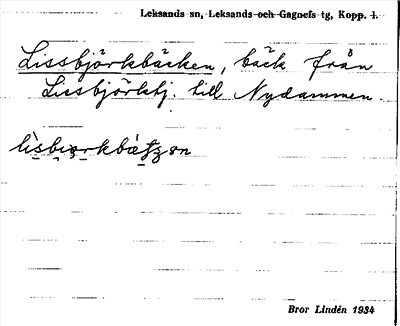 Leksands sn, Leksands och Gagnefs tg, Kopp. l.
Lissbjörkbäcken, bäck från
Lissbjörkbj. till Nydammen.
Bror Lindén 1934